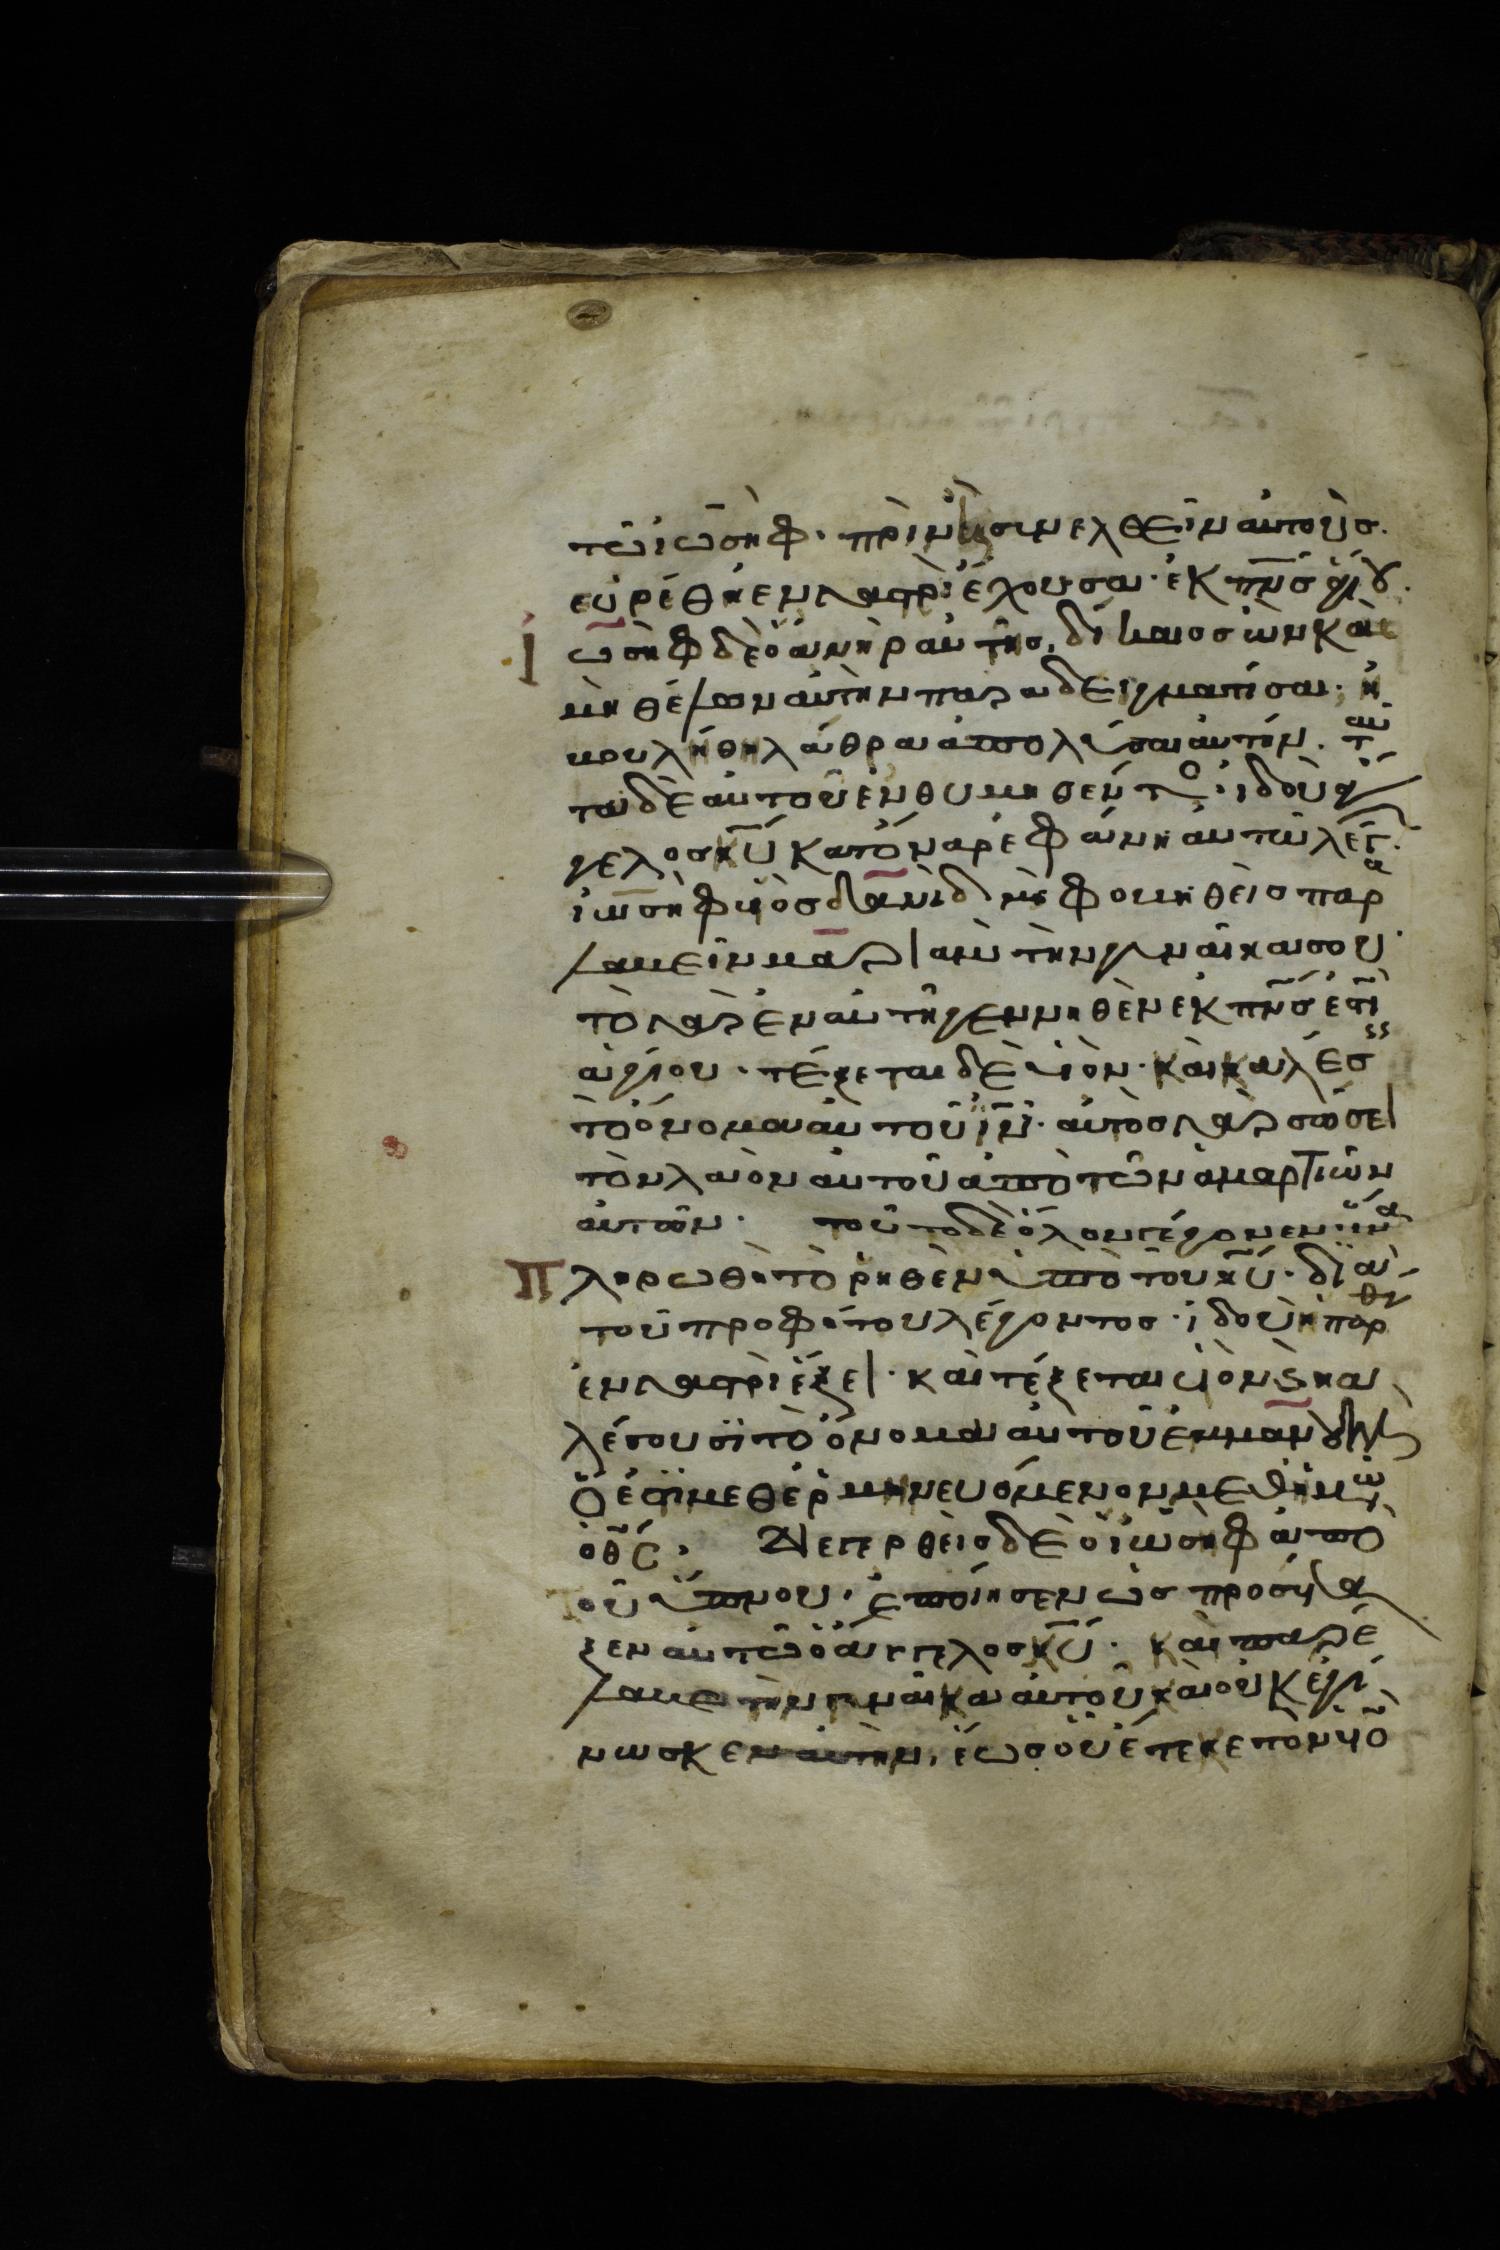 τῶ ἰωσὴφ· πρὶν ἢ συνελθεῖν αὐτοὺς.
εὑρέθη ἐν γαστρὶ ἔχουσα· ἐκ πνς ἁγίου.
Ἰωσὴφ δὲ ὁ ἀνὴρ αὐτῆς, δίκαιος ὢν καὶ
μὴ θέλων αὐτὴν παραδειγματίσαι· ἠ
βουλήθη λάθρα ἀπολύσαι αὐτήν. ταῦ
τα δὲ αὐτοῦ ἐνθυμηθέντος· ἰδοὺ ἄγ
γελος κυ κατόναρ ἐφάνη αὐτῶ λέγ.
ἰωσὴφ υἱὸς δαυὶδ μὴ φοβηθεὶς παρα
λαβεῖν μαριαμ τὴν γυναῖκα σου·
τὸ γὰρ ἐν αὐτῆ γεννηθὲν ἐκ πνς ἐστὶ
ἁγίου· τέξεται δὲ υἱὸν· καὶ καλέσεις
τὸ ὄνομα αὐτοῦ ιν· αὐτὸς γὰρ σώσει
τὸν λαὸν αὐτοῦ ἀπὸ τῶν ἁμαρτιῶν
αὐτῶν· τοῦτο δὲ ὅλον γέγονεν ἵνα
πληρωθῆ τὸ ῥηθὲν ὑπὸ τοῦ κυ· διὰ
τοῦ προφήτου λέγοντος· ἰδοὺ ἡ παρθ
ἐν γαστρὶ ἕξει· καὶ τέξεται υἱὸν ϗ κα
λέσουσι τὸ ὄνομα αὐτοῦ ἐμμανουήλ
ὅ ἐστι μεθερμηνευόμενον μεθ ἡμῶν
ὁ θς· Διεγερθεὶς δὲ ὁ ἰωσὴφ ἀπὸ
τοῦ ὕπνου· ἐποίησεν ὡς προσέτα
ξεν αὐτῶ ὁ ἄγγελος κυ· καὶ παρέ
λαβε τὴν γυναῖκα αὐτοῦ καὶ οὐκ ἐγί
νωσκεν αὐτὴν, ἕως οὗ ἔτεκε τὸν υἱὸ